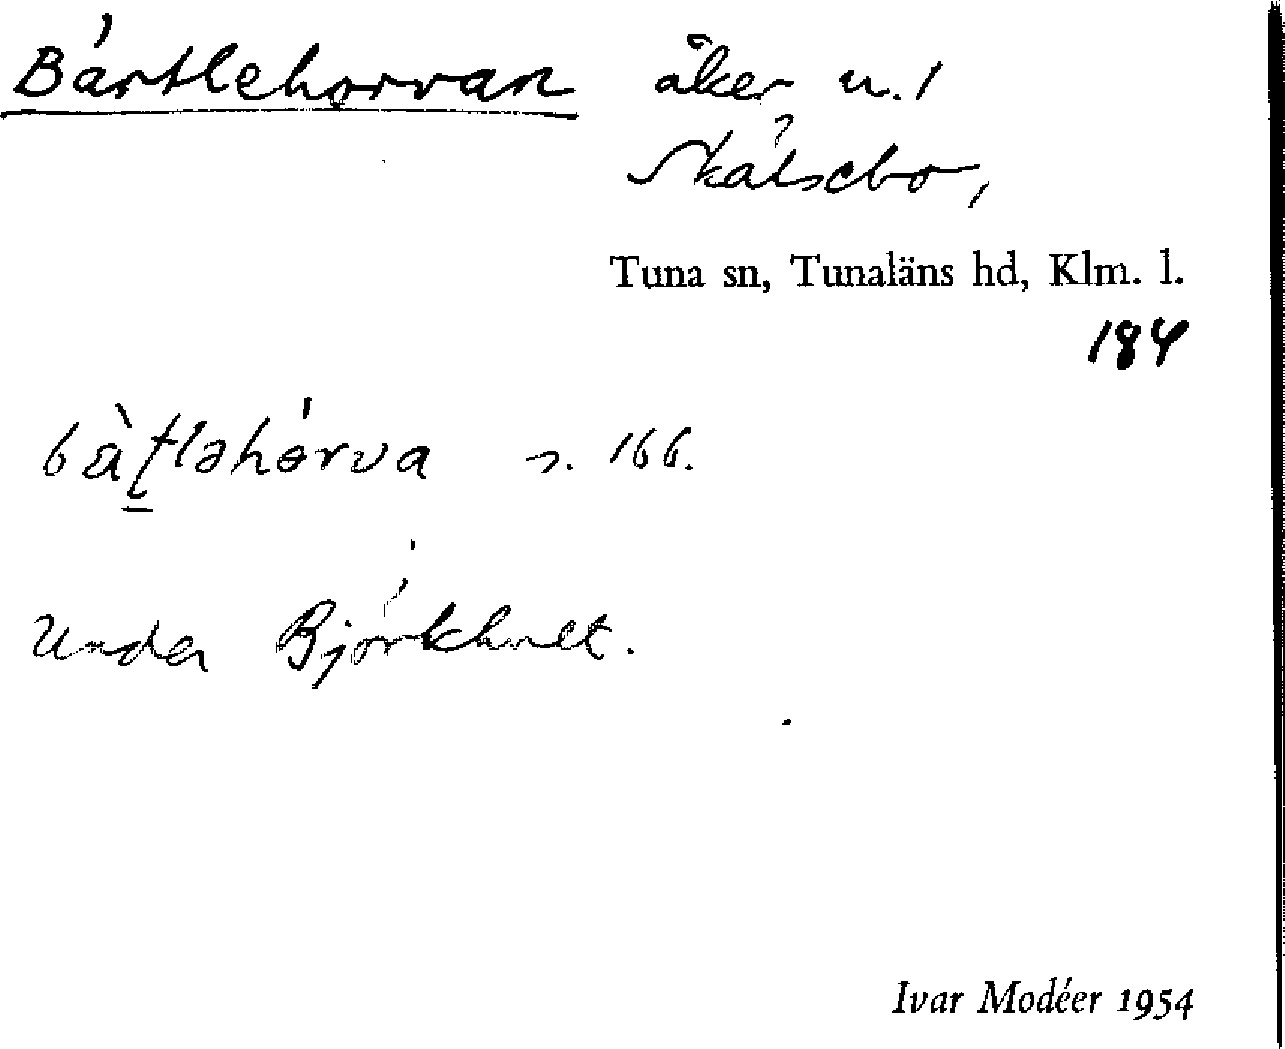 Bärtlehorvan åker u. /
Skälsebo,
Tuna sn, Tunaläns hd, Klm. l.
184
s. 166.
Under Björkhult.
Ivar Modéer 1954